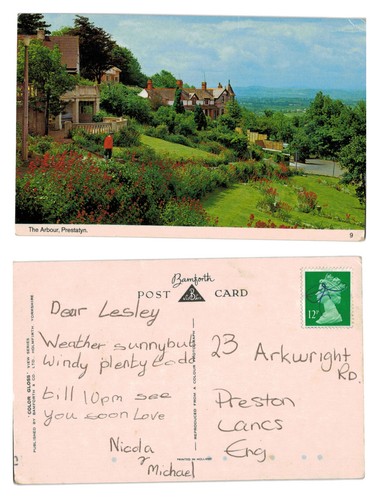 The Arbour, Prestatyn.
9
Bamforth
POST CARD
COLOR GLOSS VIEW SERIES
PUBLISHED BY BAMFORTH & CO. LTD. HOLMFIRTH YORKSHIRE
Dear Lesley
Weather sunny but
Windy plenty to do
till 10pm see
You soon Love
Nicola
Michael
REPRODUCED FROM A COLOUR
PRINTED IN
12P
23 Arkwright
RD.
Preston
Lancs
Eng